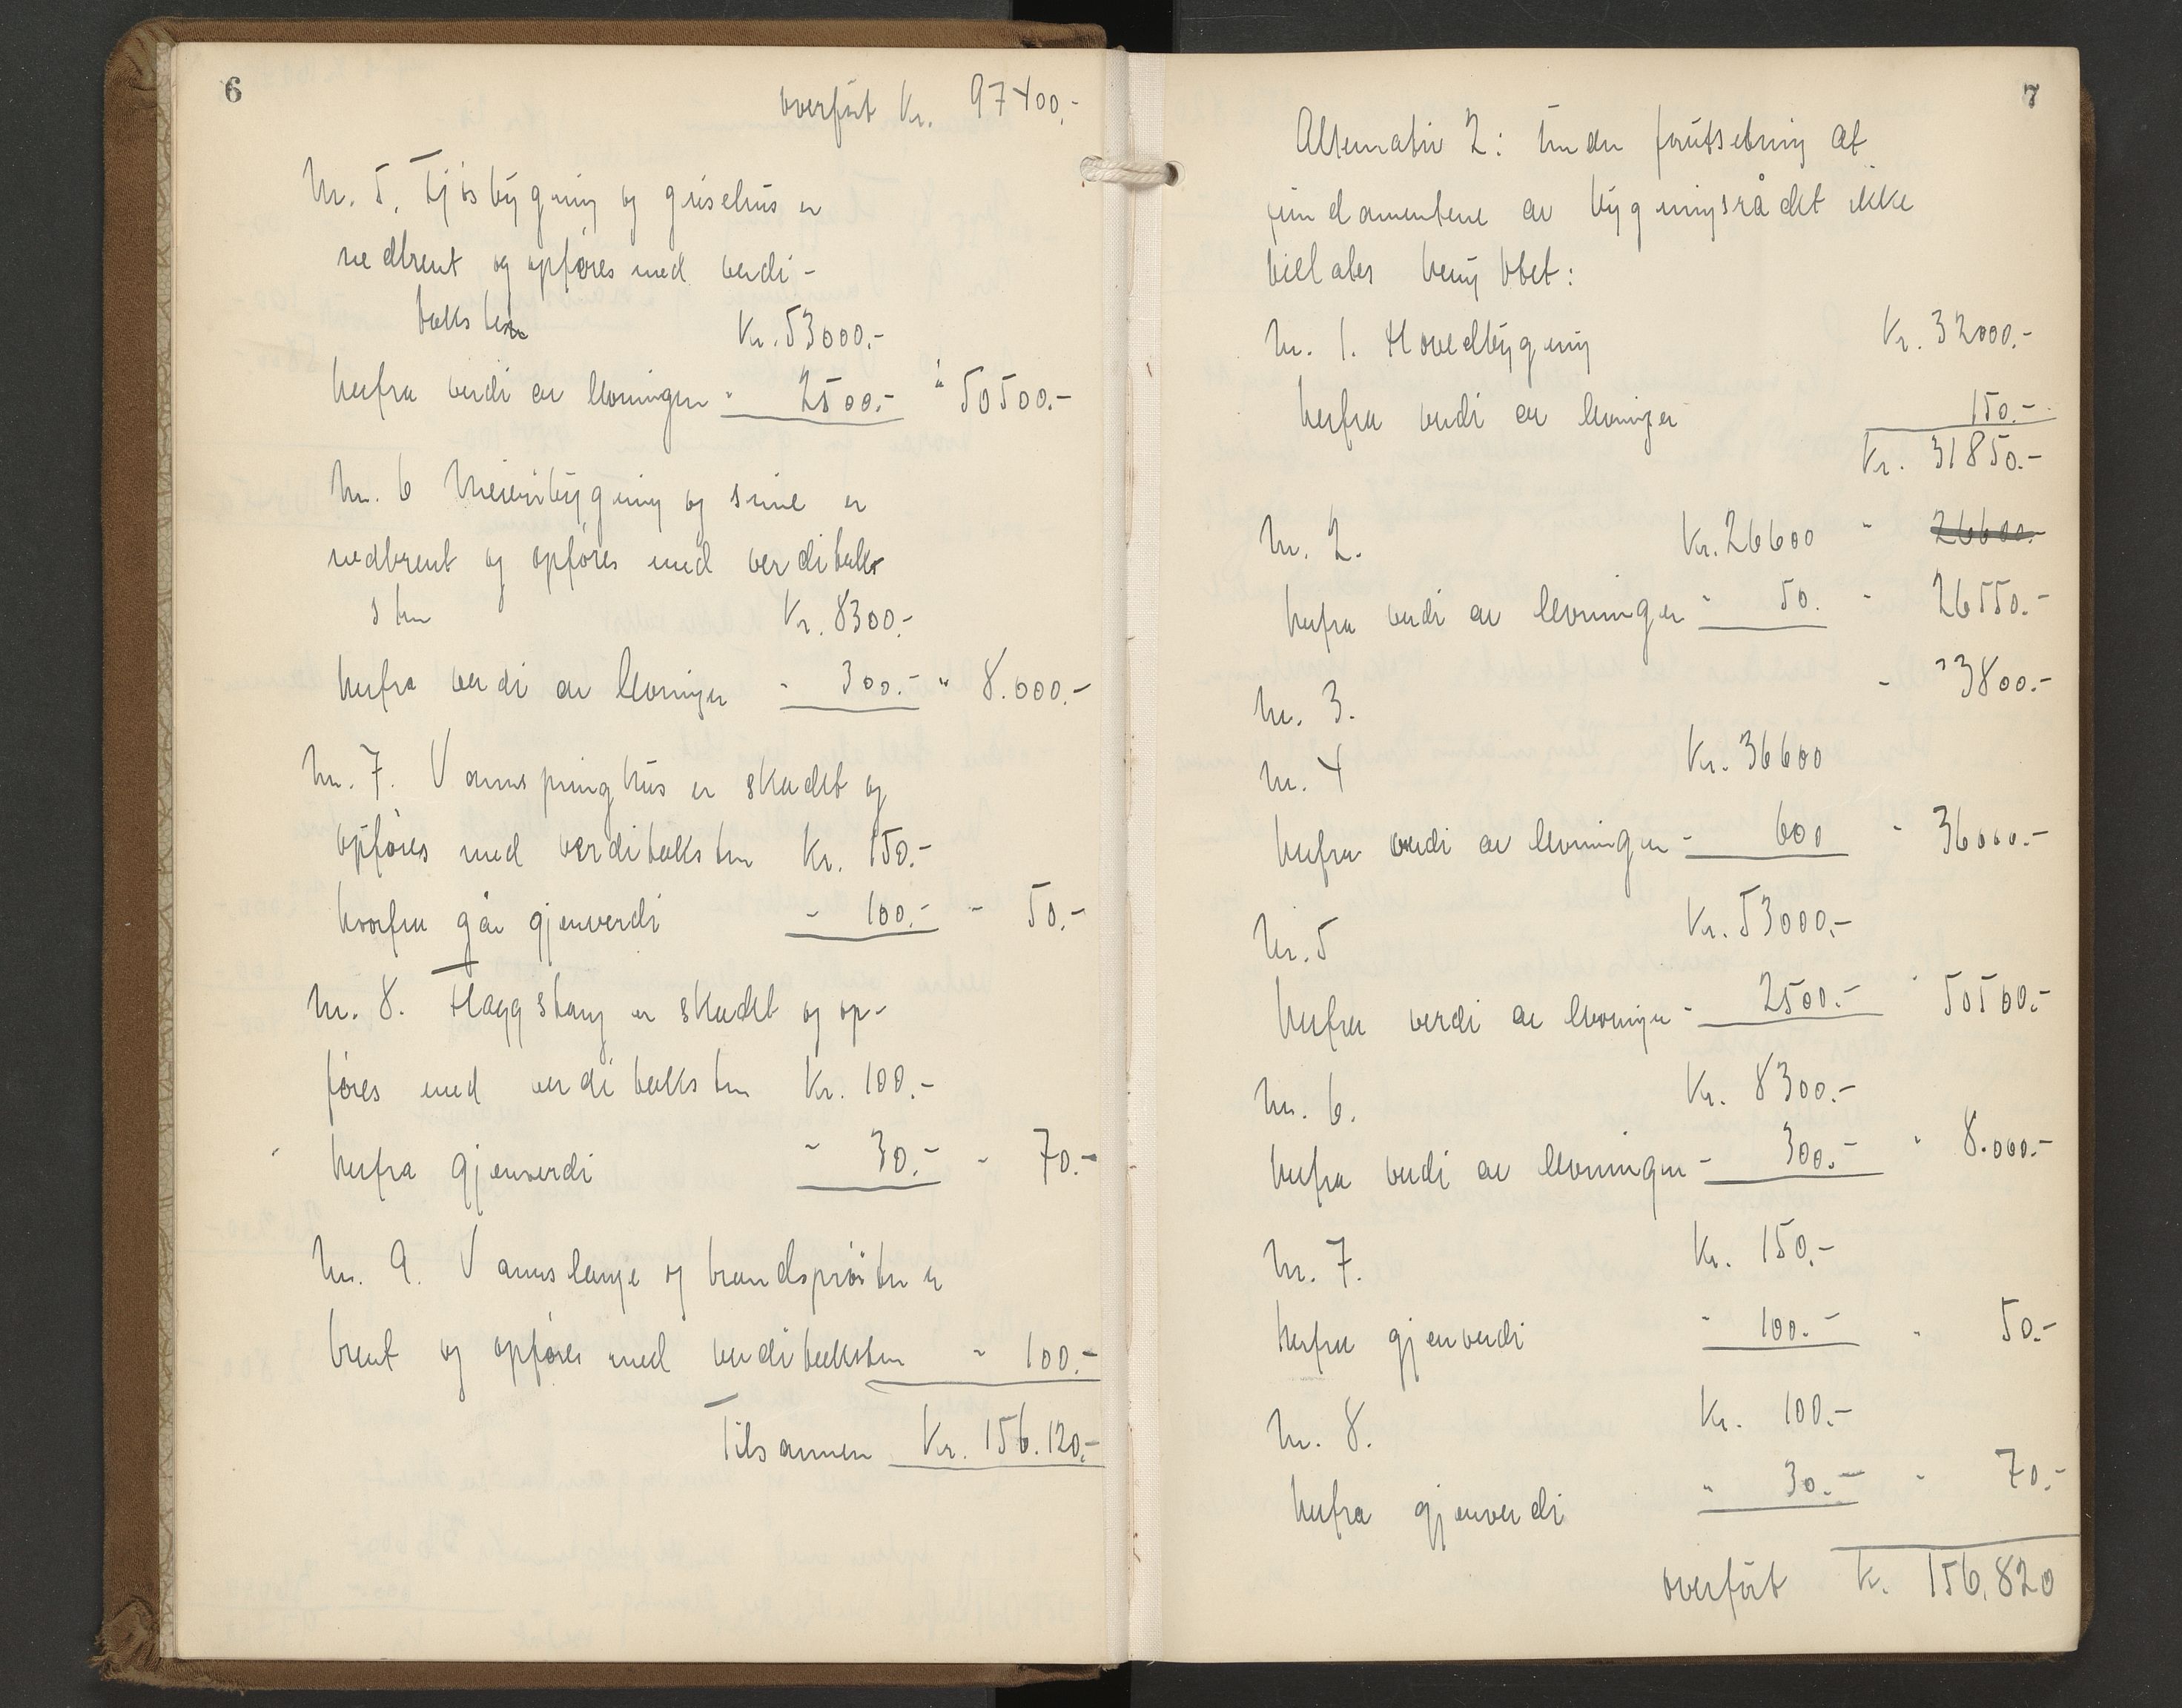 6
overført Kr. 97400.-
Nr. 5. Fjøsbygning og grisehus er
nedbrent og opføres med verdi-
taksten Kr. 53000.-
herfra verdi av levninger " 2500.- " 50500.-
Nr. 6 Meieribygning og smie er
nedbrent og opføres med verditak
sten Kr. 8300.-
herfra verdi av levninger - 300.- " 8.000.-
Nr. 7. Vannspringhus er skadet og
opføres med verditaksten Kr. 150.-
hvorfra går gjenverdi - 100.- - 50.-
Nr. 8. Flaggstang er skadet og op-
føres med verditaksten Kr. 100.-
herfra gjenverdi - 30.- - 70.-
Nr. 9. Vannslange og brandsprøiten er
brent og opføres med verditaksten - 100.-
Tilsammen Kr. 156.120.-
7
Alternativ 2: Under forutsetning at
fundamentene av bygningsrådet ikke
tillates benyttet:
Nr. 1. Hovedbygning Kr. 32000.-
herfra verdi av levninger 150.-
Kr. 31850.-
Nr. 2. Kr. 26600 " 26600.-
herfra verdi av levninger " 50. - 26550.-
Nr. 3. - 3800.-
Nr. 4 Kr. 36600
herfra verdi av levninger - 600 - 36000.-
Nr. 5 Kr. 53000.-
herfra verdi av levninger - 2500.- " 50500.-
Nr. 6. Kr. 8300.-
herfra verdi av levninger - 300.- " 8.000.-
Nr. 7. Kr. 150.-
herfra gjenverdi " 100.- - 50.-
Nr. 8. Kr. 100.-
herfra gjenverdi " 30.- - 70.-
overført Kr. 156.820